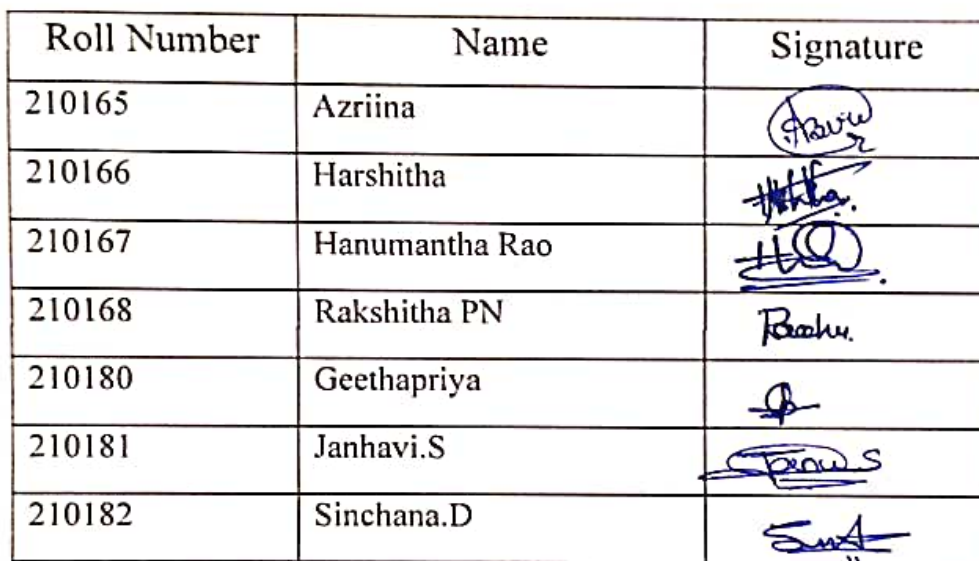 Roll Number Name Signature
210165 Azriina
210166 Harshitha
210167 Hanumantha Rao
210168 Rakshitha PN
210180 Geethapriya
210181 Janhavi.S
210182 Sinchana.D